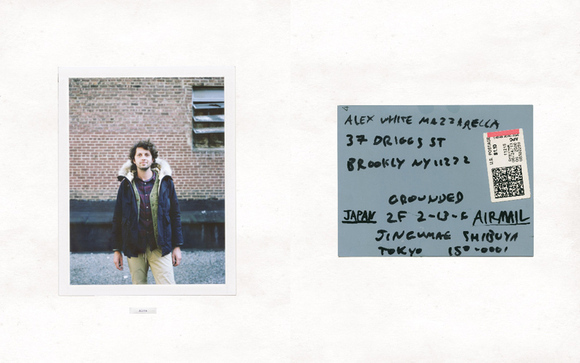 ALEX WHITE MAZZARELLA
37 DRIGGS ST
BROOKLY NY 11222
GROUNDED
JAPAN 2F 2-13-6 AIRMAIL
JINGUMAE SHIBUYA
TOKYO 150-0001